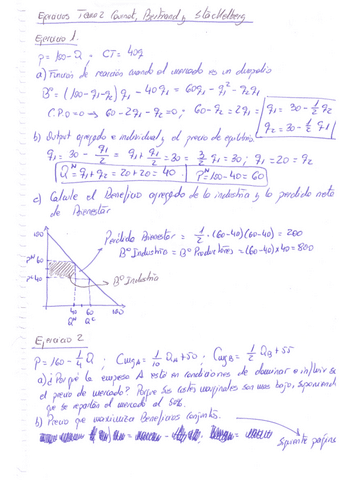 Ejercicios Tema 2 Cournot, Bertrand y Stackelberg
Ejercicio 1.
P = 100 - Q ; CT = 40q
a) Función de reacción cuando el mercado es un duopolio
Bº = (100 - q1 - q2) q1 - 40q1 = 60q1 - q1² - q2q1
C.P.O = 0 → 60 - 2q1 - q2 = 0 ; 60 - q2 = 2q1 = q1 = 30 - 1/2 q2
q2 = 30 - 1/2 q1
b) Output agregado e individual y el precio de equilibrio
q1 = 30 - q1/2 = q1 + q1/2 = 30 = 3/2 q1 = 30 ; q1 = 20 = q2
Qᴺ = q1 + q2 = 20 + 20 = 40 . Pᴺ = 100 - 40 = 60
c) Calcule el Beneficio agregado de la industria y la perdida neta
de Bienestar
100
Perdida Bienestar = 1/2 · (60-40)(60-40) = 200
Bº Industria = Bº Productores = (60-40) x 40 = 800
Pᴺ 60
Pᶜ 40
Bº Industria
40 60 100
Qᴺ Qᶜ
Ejercicio 2
P = 160 - 1/4 Q ; CmgA = 1/10 QA + 50 ; CmgB = 1/2 QB + 55
a) ¿Por qué la empresa A está en condiciones de dominar e influir en
el precio de mercado? Porque sus costes marginales son mas bajo, suponiendo
que se reparten el mercado al 50%.
b) Precio que maximiza Beneficios conjuntos.
Siguiente página